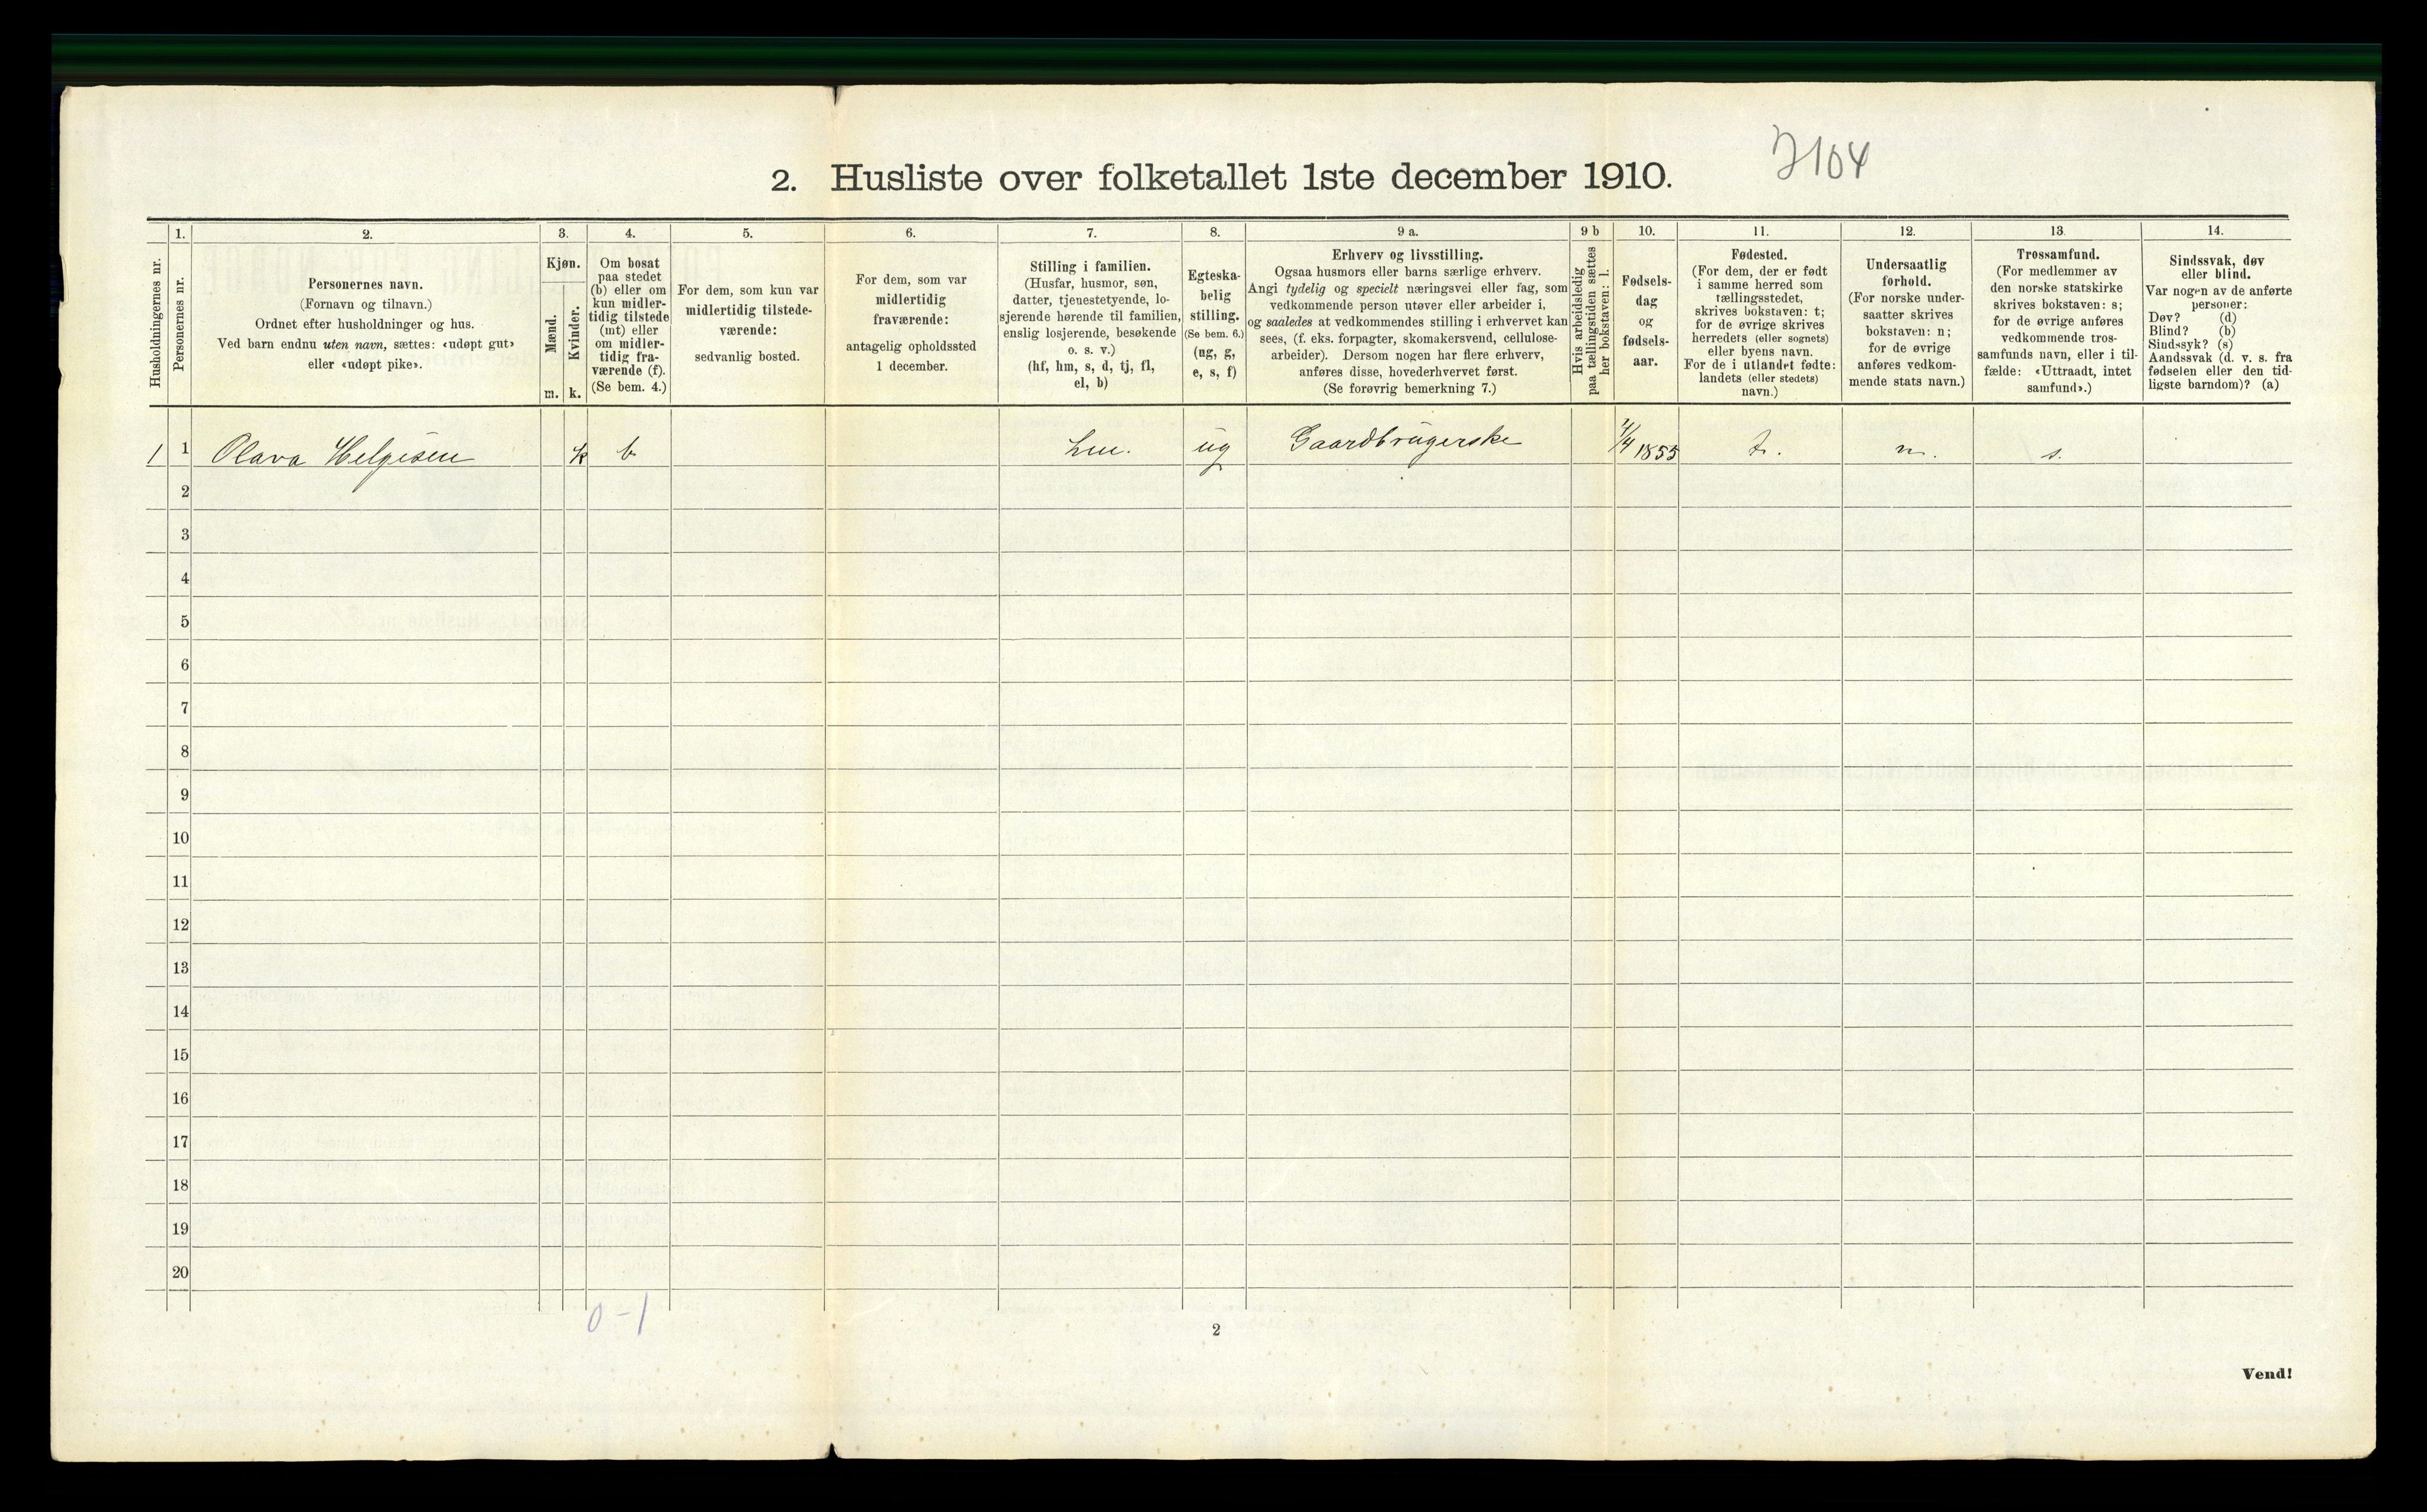 7104
2. Husliste over folketallet 1ste december 1910.
Husholdningernes nr.
1.
Personernes nr.
2.
Personernes navn.
(Fornavn og tilnavn.)
Ordnet efter husholdninger og hus.
Ved barn endnu uten navn, sættes: «udøpt gut»
eller «udøpt pike».
3.
Kjøn.
Mænd.
Kvinder.
m. k.
4.
Om bosat
paa stedet
(b) eller om
kun midler-
tidig tilstede
(mt) eller
om midler-
tidig fra-
værende (f).
(Se bem. 4.)
5.
For dem, som kun var
midlertidig tilstede-
værende:
sedvanlig bosted.
6.
For dem, som var
midlertidig
fraværende:
antagelig opholdssted
1 december.
7.
Stilling i familien.
(Husfar, husmor, søn,
datter, tjenestetyende, lo-
sjerende hørende til familien,
enslig losjerende, besøkende
o. s. v.)
(hf, hm, s, d, tj, fl,
el, b)
8.
Egteska-
belig
stilling.
(Se bem. 6.)
(ug, g,
e, s, f)
9 a.
Erhverv og livsstilling.
Ogsaa husmors eller barns særlige erhverv.
Angi tydelig og specielt næringsvei eller fag, som
vedkommende person utøver eller arbeider i,
og saaledes at vedkommendes stilling i erhvervet kan
sees, (f. eks. forpagter, skomakersvend, cellulose-
arbeider). Dersom nogen har flere erhverv,
anføres disse, hovederhvervet først.
(Se forøvrig bemerkning 7.)
9 b
Hvis arbeidsledig
paa tællingstiden sættes
her bokstaven: l.
10.
Fødsels-
dag
og
fødsels-
aar.
11.
Fødested.
(For dem, der er født
i samme herred som
tællingsstedet,
skrives bokstaven: t;
for de øvrige skrives
herredets (eller sognets)
eller byens navn.
For de i utlandet fødte:
landets (eller stedets)
navn.)
12.
Undersaatlig
forhold.
(For norske under-
saatter skrives
bokstaven: n;
for de øvrige
anføres vedkom-
mende stats navn.)
13.
Trossamfund.
(For medlemmer av
den norske statskirke
skrives bokstaven: s;
for de øvrige anføres
vedkommende tros-
samfunds navn, eller i til-
fælde: «Uttraadt, intet
samfund».)
14.
Sindssvak, døv
eller blind.
Var nogen av de anførte
personer:
Døv? (d)
Blind? (b)
Sindssyk? (s)
Aandssvak (d. v. s. fra
fødselen eller den tid-
ligste barndom)? (a)
1 1 Olava Helgesen k b hm. ug Gaardbrugerske 1855 t. n. s.
2
3
4
5
6
7
8
9
10
11
12
13
14
15
16
17
18
19
20
0-1
2
Vend!